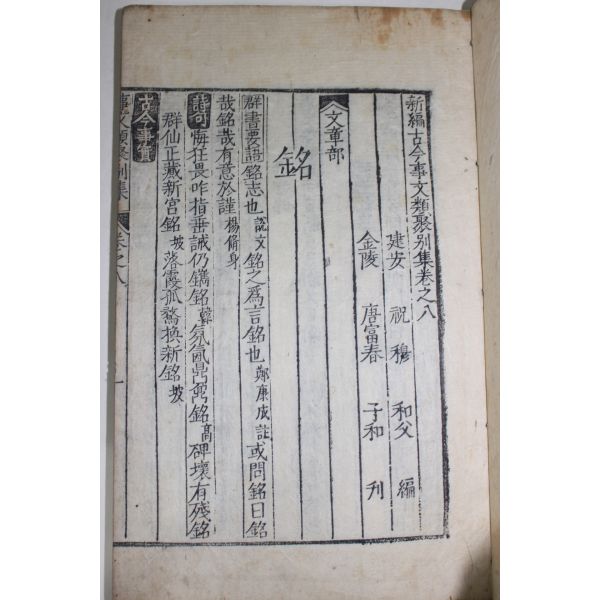 新編古今事文類聚別集卷之八
建安 祝穆 和父 編
金陵 唐富春 子和 刋
文章部
銘
群書要語銘志也說文銘之為言銘也鄭康成註或問銘曰銘
哉銘哉有意於謹楊脩身
詩句悔狂畏咋指垂誡仍鐫銘韓氛氳鼎鼐銘高碑壞有殘銘
群仙正藏新宮銘坡落霞孤鶩換新銘坡
古今事實
事文類聚別集 卷之八